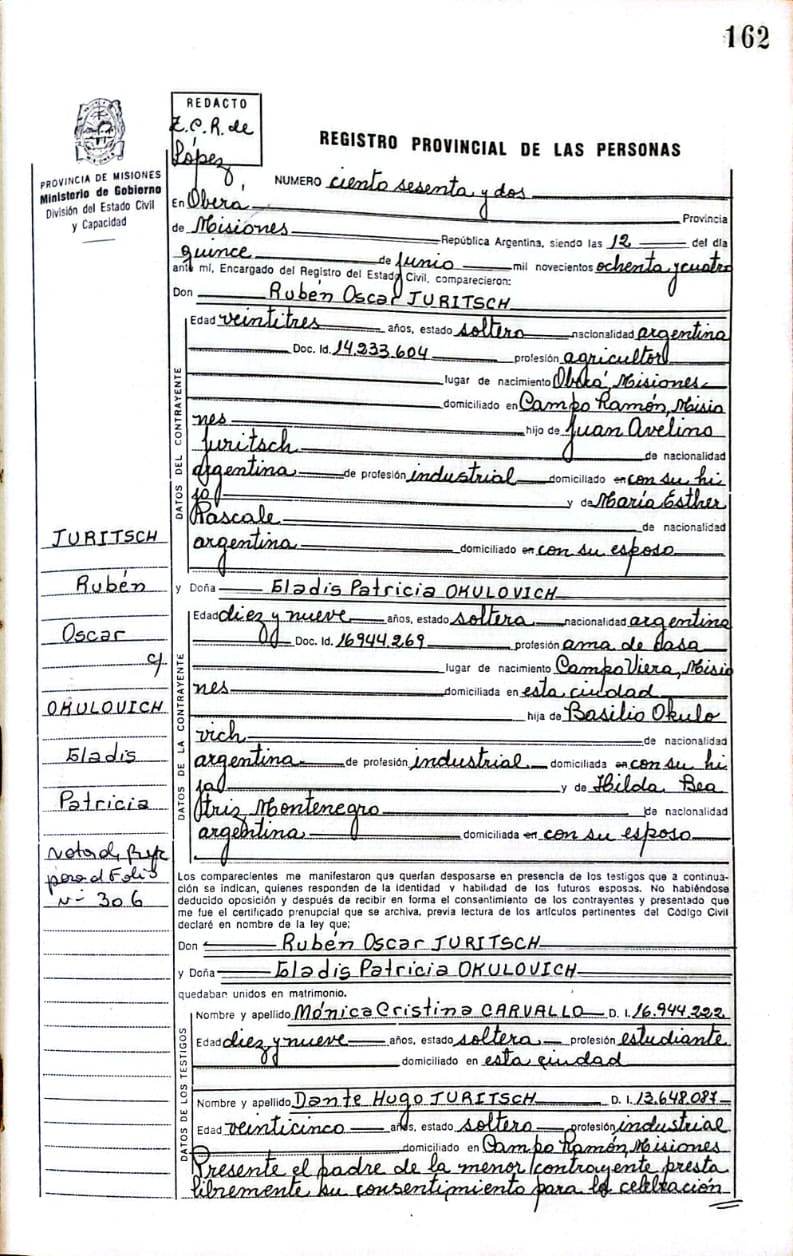 162
REDACTO
Z.C.R. de
López
REGISTRO PROVINCIAL DE LAS PERSONAS
PROVINCIA DE MISIONES
Ministerio de Gobierno
División del Estado Civil
y Capacidad
NUMERO ciento sesenta y dos
En Oberá Provincia
de Misiones República Argentina, siendo las 12 del día
quince de junio mil novecientos ochenta y cuatro
ante mí, Encargado del Registro del Estado Civil, comparecieron:
Don Rubén Oscar JURITSCH
DATOS DEL CONTRAYENTE
Edad veintitres años, estado soltero nacionalidad argentina
Doc. Id. 14.233.604 profesión agricultor
lugar de nacimiento Oberá, Misiones
domiciliado en Campo Ramón, Misio
nes hijo de Juan Avelino
Juritsch de nacionalidad
argentina de profesión industrial domiciliado en con su hi
jo y de María Esther
Rascale de nacionalidad
argentina domiciliado en con su esposo
y Doña Gladis Patricia OKULOVICH
DATOS DE LA CONTRAYENTE
Edad diez y nueve años, estado soltera nacionalidad argentina
Doc. Id. 16944.269 profesión ama de casa
lugar de nacimiento Campo Viera, Misio
nes domiciliada en esta ciudad
hija de Basilio Okulo
vich de nacionalidad
argentina de profesión industrial domiciliada en con su hi
ja y de Hilda Bea
triz Montenegro de nacionalidad
argentina domiciliada en con su esposo
JURITSCH
Rubén
Oscar
c/
OKULOVICH
Gladis
Patricia
Nota de
Folio
N- 306
Los comparecientes me manifestaron que querían desposarse en presencia de los testigos que a continua-
ción se indican, quienes responden de la identidad y habilidad de los futuros esposos. No habiéndose
deducido oposición y después de recibir en forma el consentimiento de los contrayentes y presentado que
me fue el certificado prenupcial que se archiva, previa lectura de los artículos pertinentes del Código Civil
declaré en nombre de la ley que:
Don Rubén Oscar JURITSCH
y Doña Gladis Patricia OKULOVICH
quedaban unidos en matrimonio.
DATOS DE LOS TESTIGOS
Nombre y apellido Mónica Cristina CARVALLO D. I. 16.944.222
Edad diez y nueve años, estado soltera profesión estudiante
domiciliado en esta ciudad
Nombre y apellido Dante Hugo JURITSCH D. I. 13.648.087
Edad veinticinco años, estado soltero profesión industrial
domiciliado en Campo Ramón, Misiones
Presente el padre de la menor contrayente presta
libremente su consentimiento para la celebración